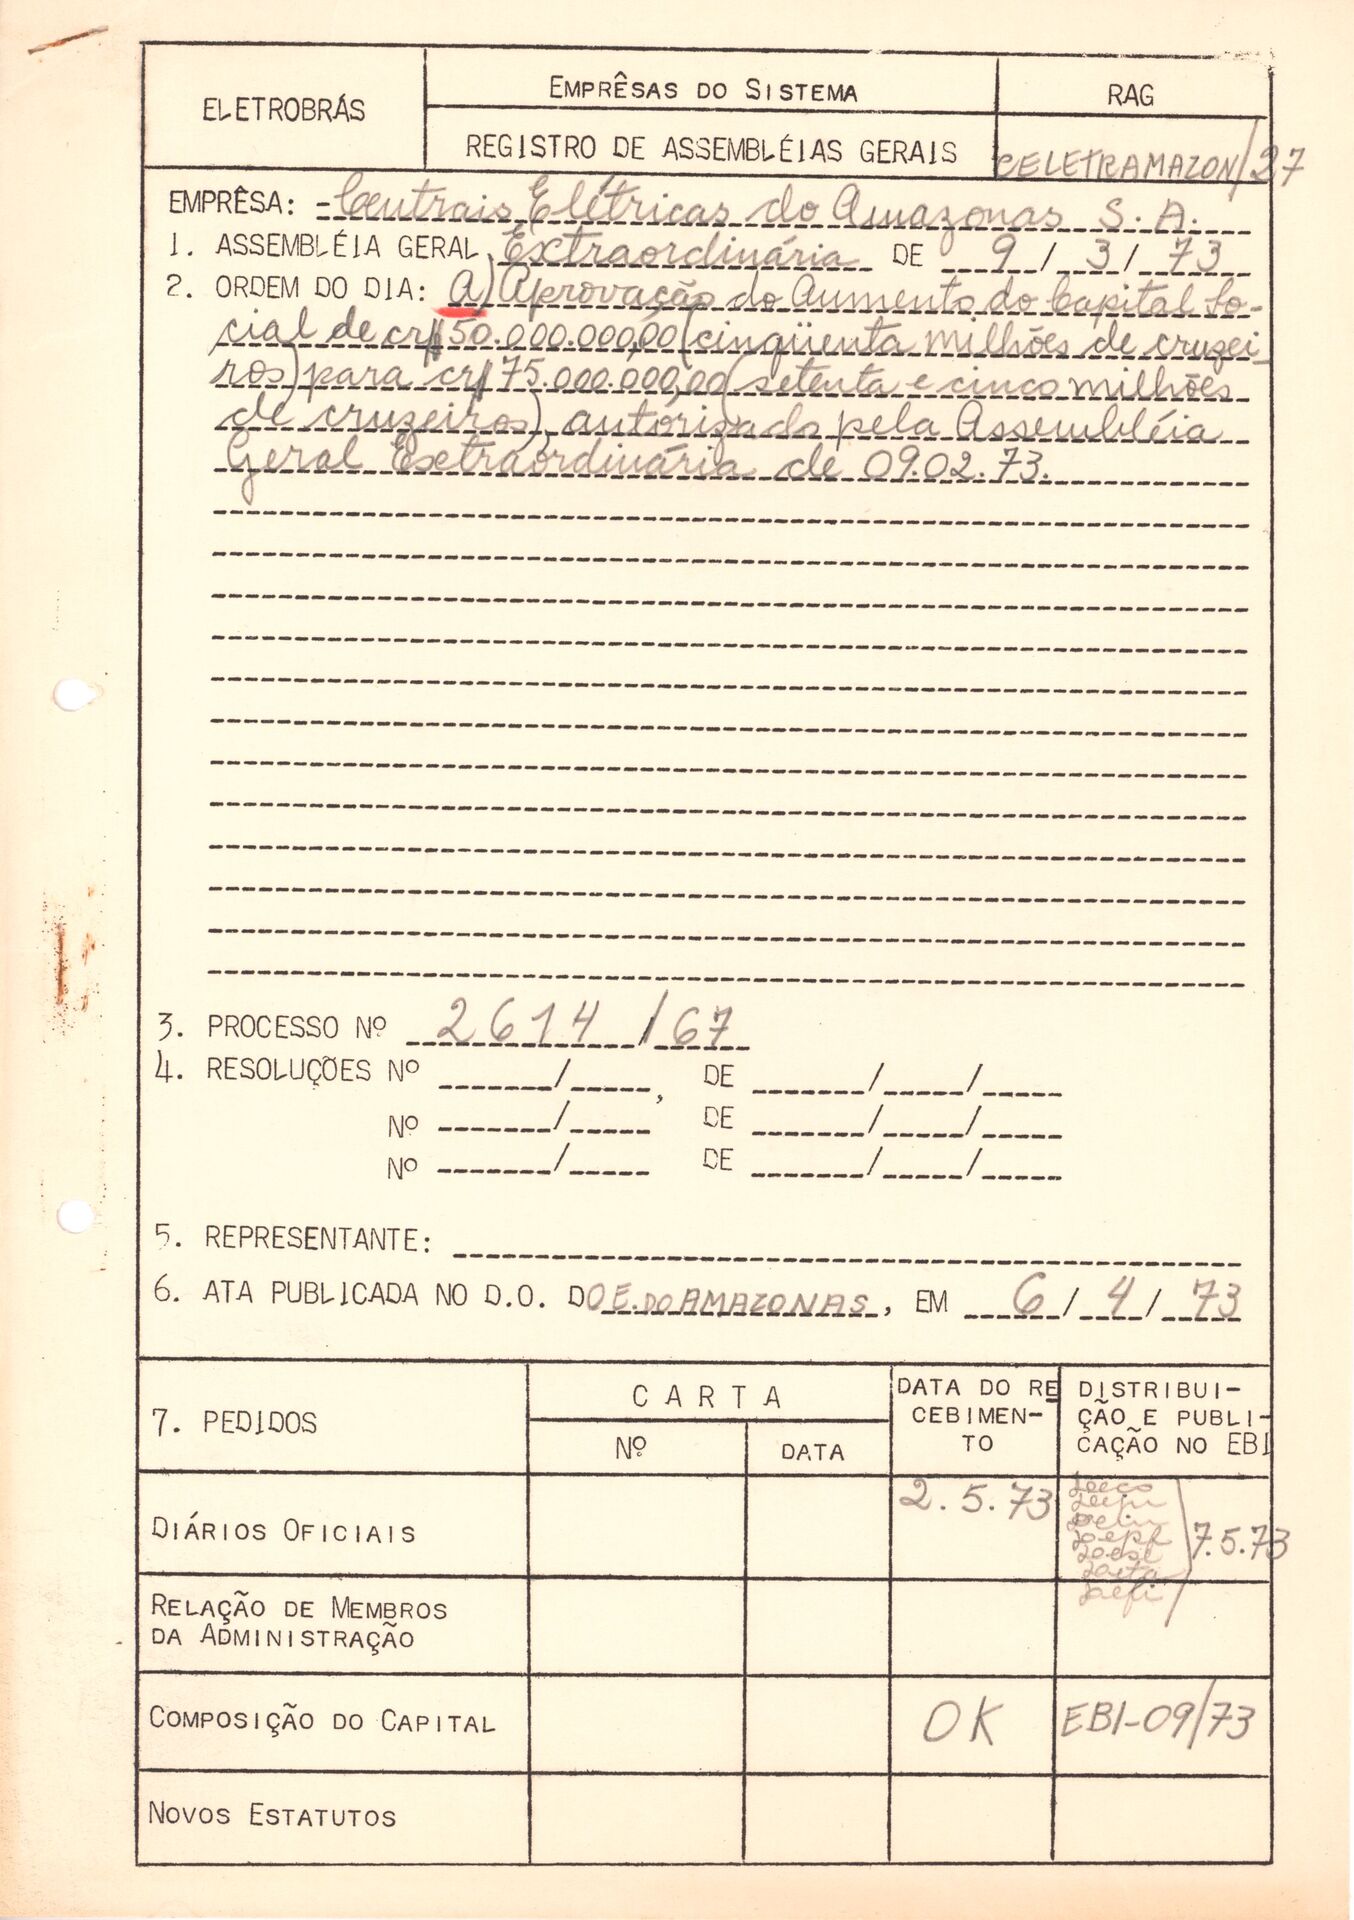 ELETROBRÁS
EMPRÊSAS DO SISTEMA
REGISTRO DE ASSEMBLÉIAS GERAIS
RAG
CELETRAMAZON/27
EMPRÊSA: - Centrais Elétricas do Amazonas S.A.
1. ASSEMBLÉIA GERAL Extraordinária DE 9/3/73
2. ORDEM DO DIA: A) Aprovação do Aumento do Capital So-
cial de cr$ 50.000.000,00 (cinqüenta milhões de cruzei-
ros) para cr$ 75.000.000,00 (setenta e cinco milhões
de cruzeiros), autorizado pela Assembléia
Geral Extraordinária de 09.02.73.
3. PROCESSO Nº 2614/67
4. RESOLUÇÕES Nº /, DE / /
Nº / DE / /
Nº / DE / /
5. REPRESENTANTE:
6. ATA PUBLICADA NO D.O. DO E. DO AMAZONAS, EM 6/4/73
7. PEDIDOS
CARTA
Nº
DATA
DATA DO RE
CEBIMEN-
TO
DISTRIBUI-
ÇÃO E PUBLI-
CAÇÃO NO EBI
DIÁRIOS OFICIAIS
2.5.73
7.5.73
RELAÇÃO DE MEMBROS
DA ADMINISTRAÇÃO
COMPOSIÇÃO DO CAPITAL
OK
EBI-09/73
NOVOS ESTATUTOS